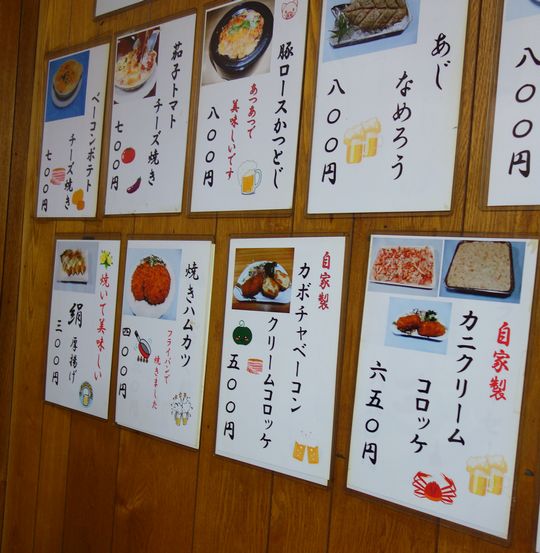 ベーコンポテト
チーズ焼き
七〇〇円
茄子トマト
チーズ焼き
七〇〇円
豚ロースかつとじ
あつあつで
美味しいです
八〇〇円
あじ
なめろう
八〇〇円
八〇〇円
焼いて美味しい
絹厚揚げ
三〇〇円
焼きハムカツ
フライパンで
焼きました
四〇〇円
自家製
カボチャベーコン
クリームコロッケ
五〇〇円
自家製
カニクリーム
コロッケ
六五〇円